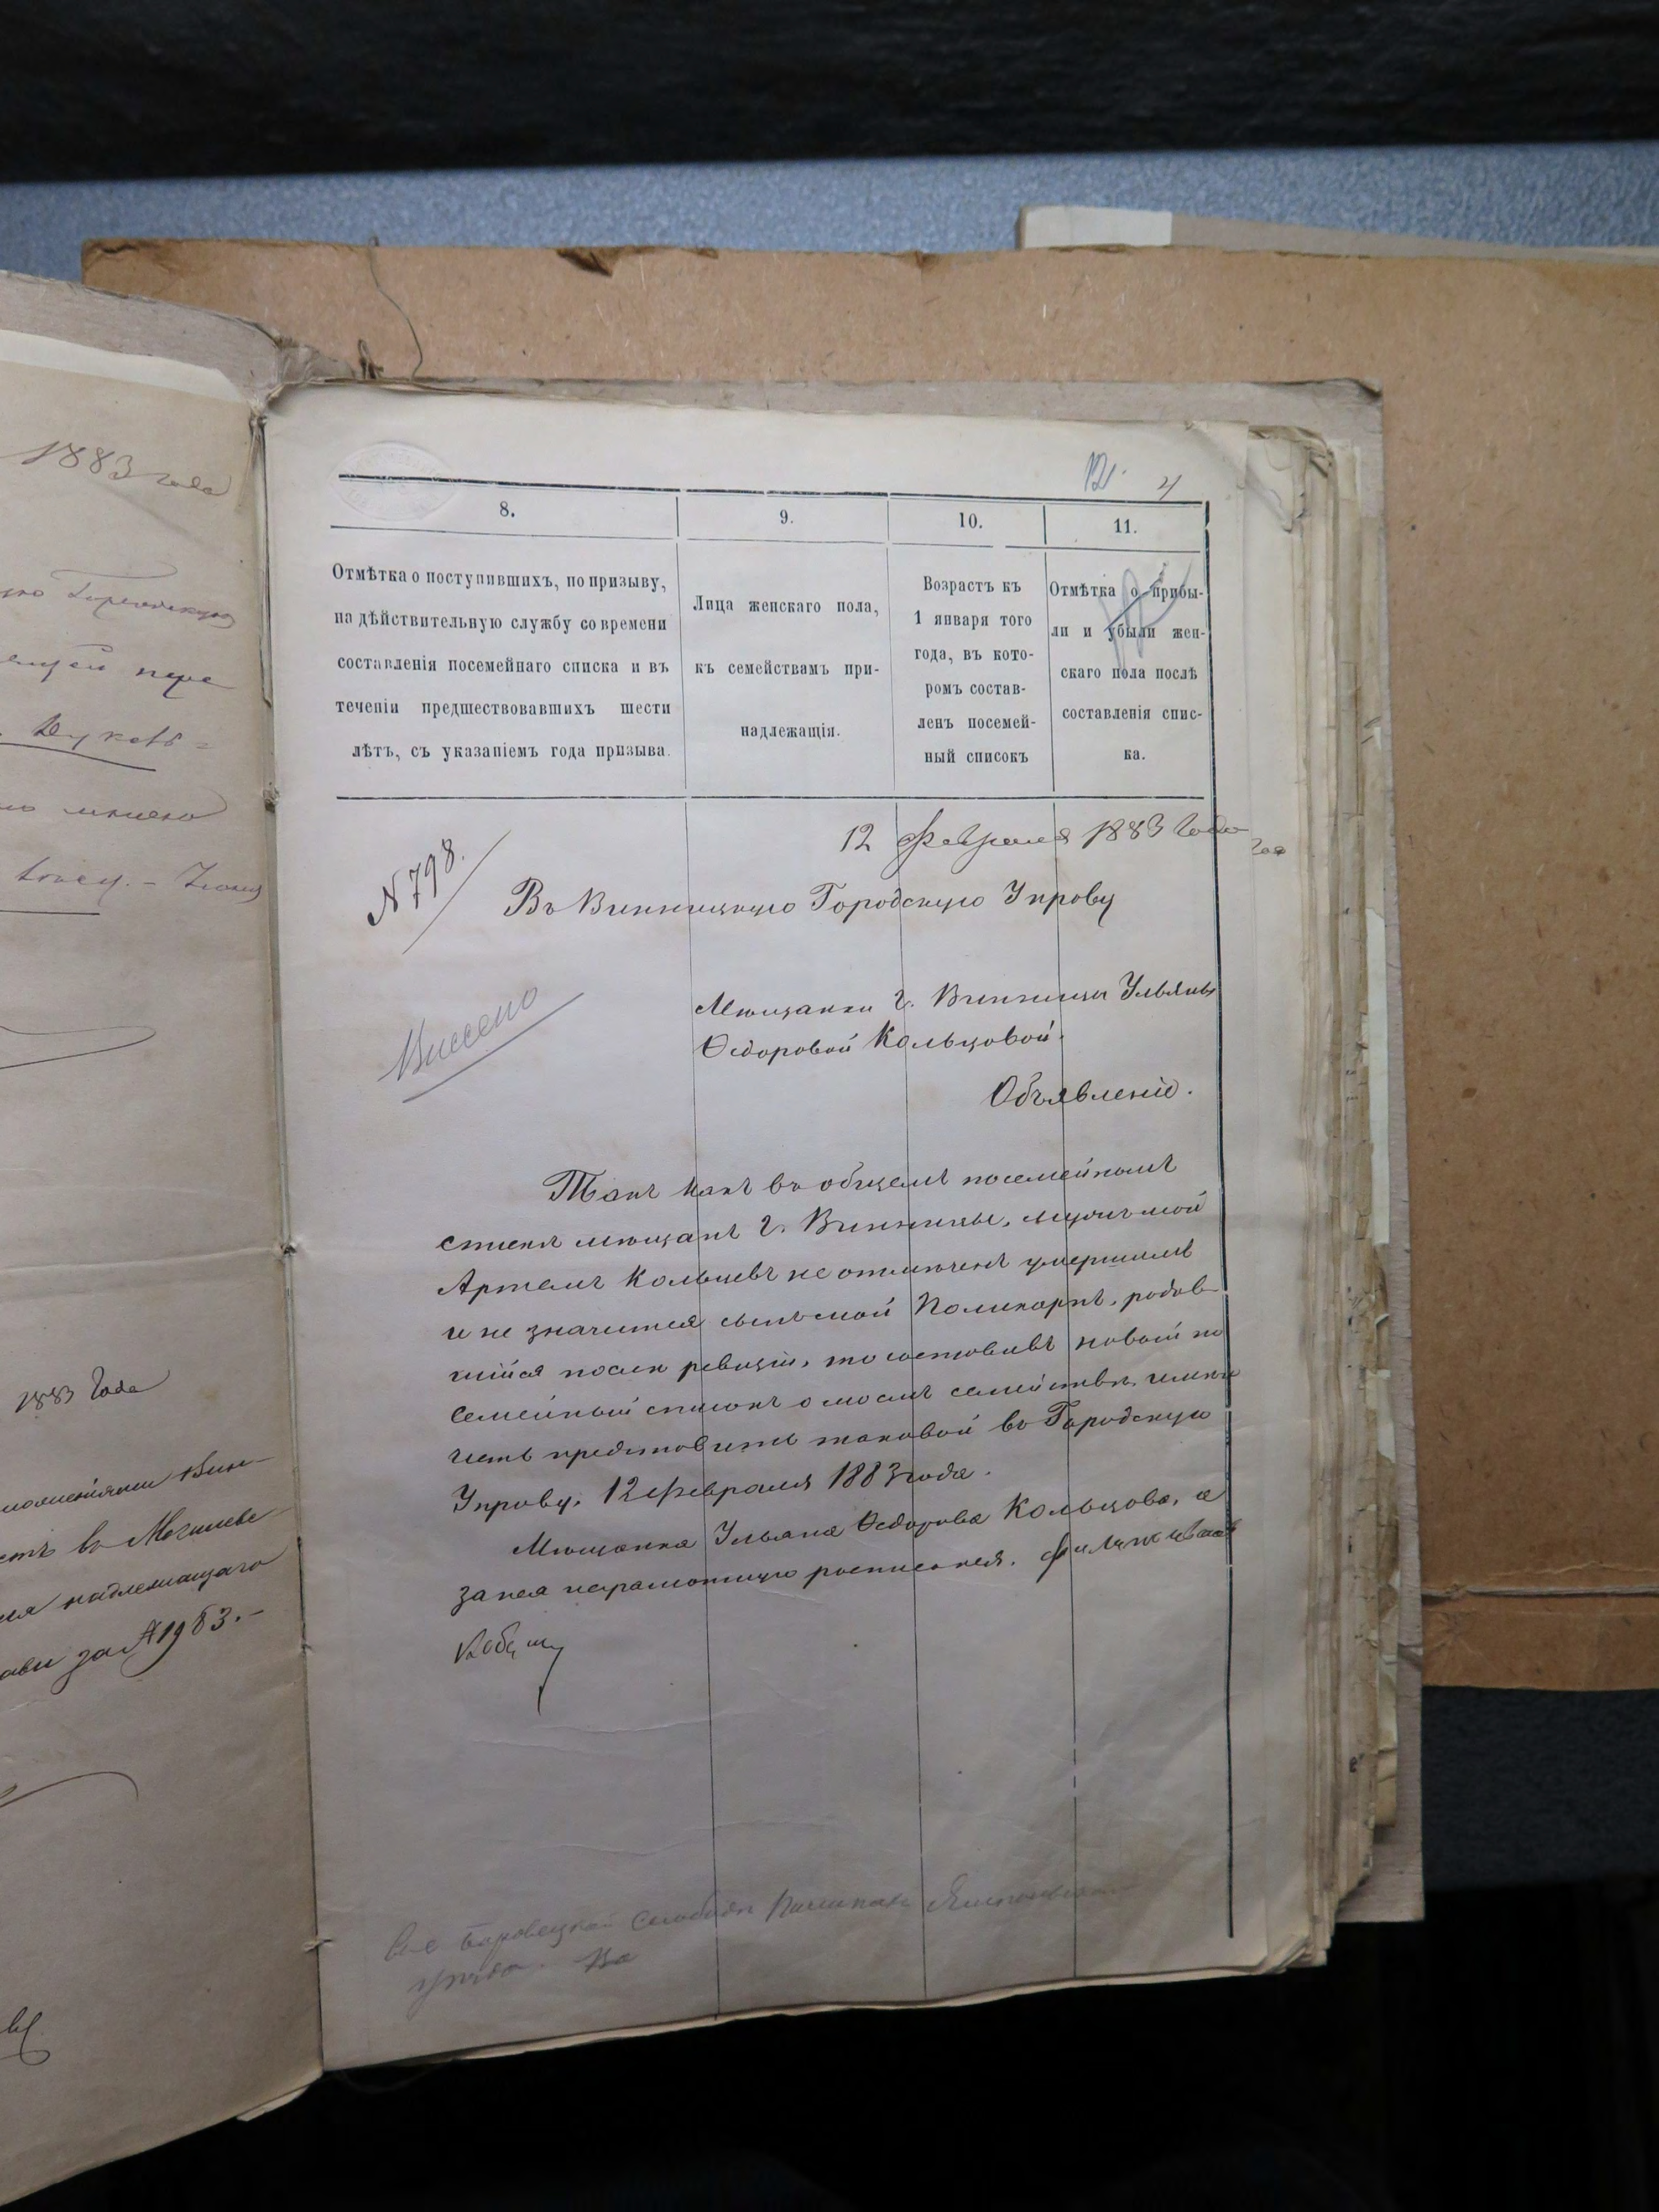 1883 года
12. 4
8.
9.
10.
11.
Отмѣтка о поступившихъ, по призыву,
на дѣйствительную службу со времени
составленія посемейнаго списка и въ
теченіи предшествовавшихъ шести
лѣтъ, съ указаніемъ года призыва.
Лица женскаго пола,
къ семействамъ при-
надлежащія.
Возрастъ къ
1 января того
года, въ кото-
ромъ состав-
ленъ посемей-
ный списокъ
Отмѣтка о прибы-
ли и убыли жен-
скаго пола послѣ
составленія спис-
ка.
№ 798.
12 Февраля 1883 года
Въ Винницкую Городскую Управу
Внесено
Мѣщанки г. Винницы Ульяны
Ѳедоровой Кольцовой.
Объявленіе.
Такъ какъ въ общемъ посемейномъ
спискѣ мѣщанъ г. Винницы, мужъ мой
Артемъ Кольцевъ не отмѣченъ умершимъ
и не значится сынъ мой Поликарпъ, родов-
шійся послѣ ревизіи, то составивъ новый по
семейный списокъ о моемъ семействѣ, имѣю
честь представить таковой въ Городскую
Управу. 12 февраля 1883 года.
Мѣщанка Ульяна Ѳедорова Кольцова, а
за нея неграмотную росписался.
1883 года
въ Могилевѣ
надлежащаго
за № 1983.-